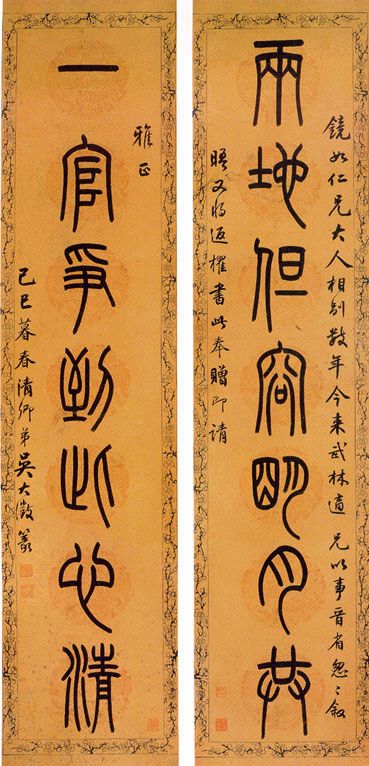 鏡如仁兄大人相別數年今來武林適 兄以事晉省怱〻敘
兩地但容朙月共
晤又將返櫂書此奉贈即請
雅正
一官爭到此心清
己巳暮春清卿弟吳大澂篆